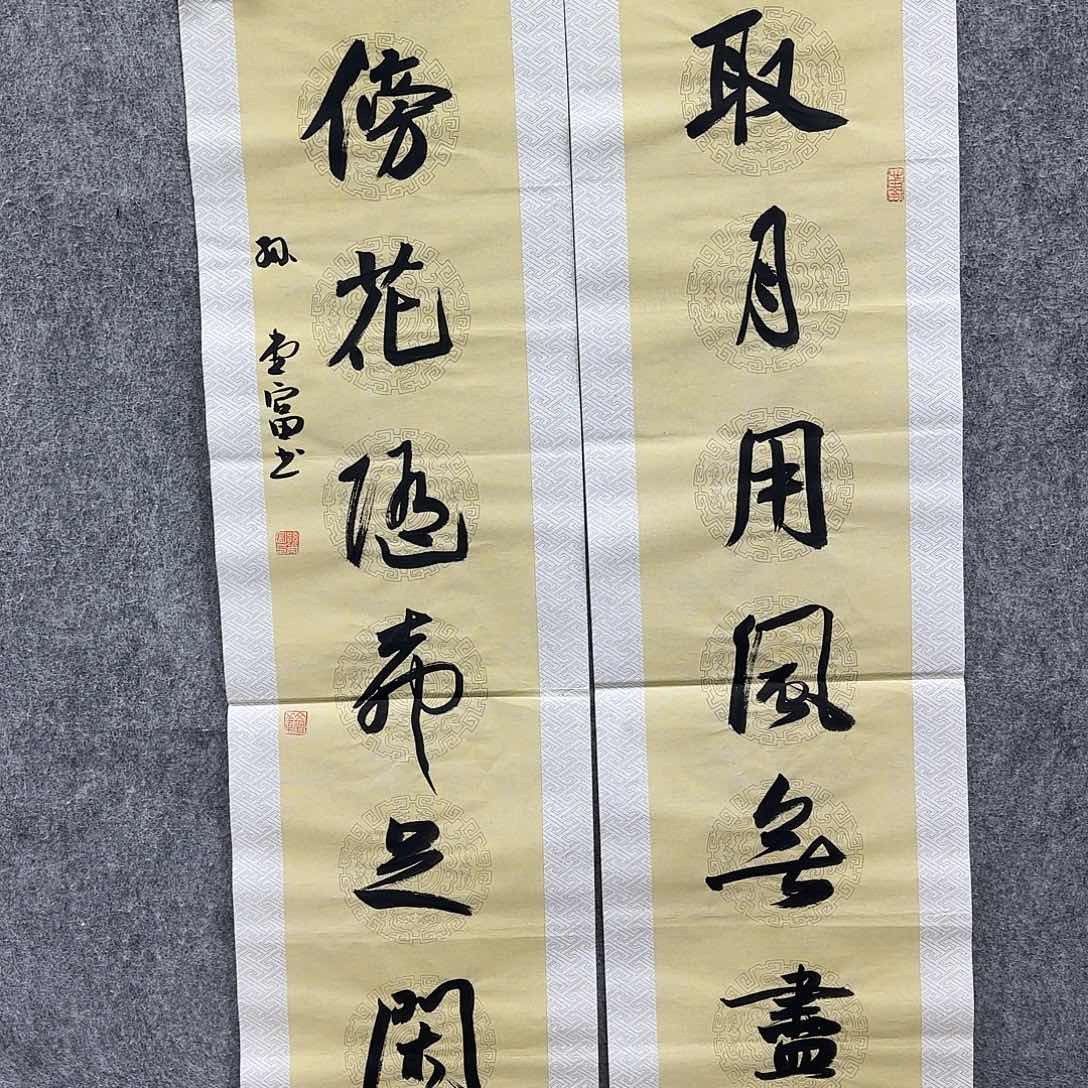 取月用風無盡
傍花隨足閑
孫富书